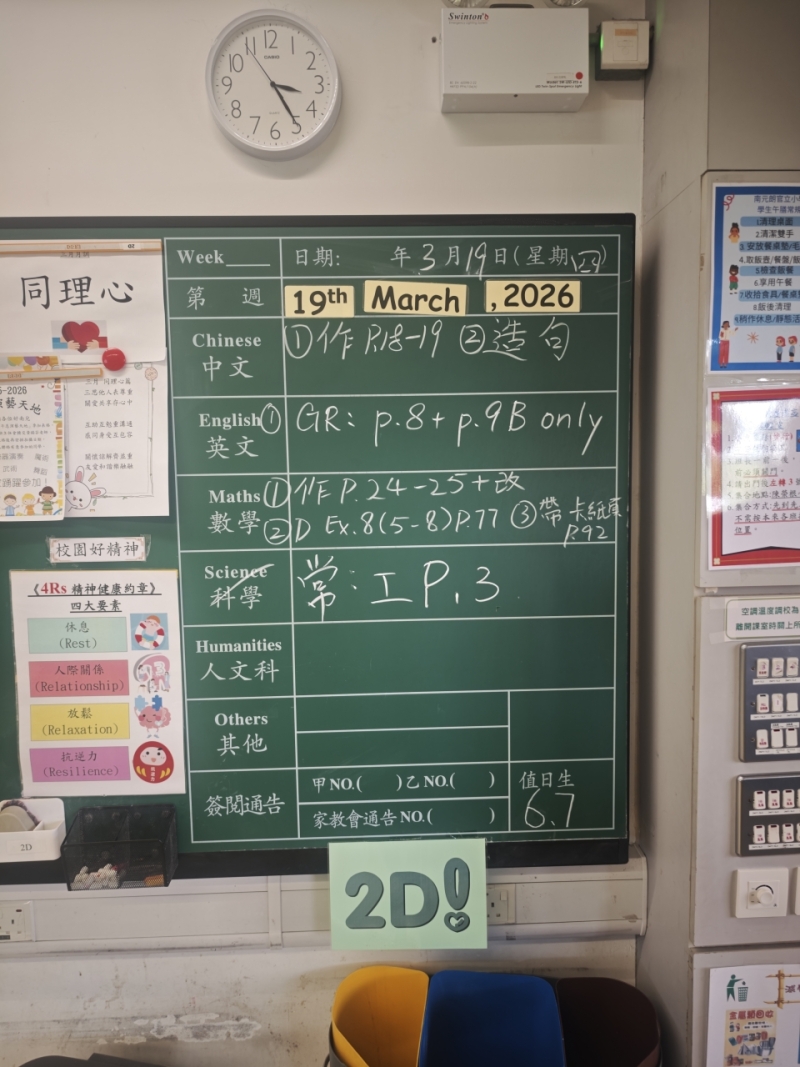 12
1
2
3
4
5
6
7
8
9
10
11
CASIO
Swinton's
同理心
校園好精神
《4Rs 精神健康約章》
四大要素
休息
(Rest)
人際關係
(Relationship)
放鬆
(Relaxation)
抗逆力
(Resilience)
2D
Week
日期: 年3月19日(星期四)
第 週
19th March , 2026
Chinese
中文
①作P.18-19 ②造句
English
英文
① GR: p.8+p.9B only
Maths
數學
①作P.24-25+改
②D Ex.8(5-8)P.77 ③帶卡紙頁
P.92
Science
科學
常:工P.3
Humanities
人文科
Others
其他
簽閱通告
甲NO.( )乙NO.( )
家教會通告NO.( )
值日生
6.7
2D!
學生午膳常規
1.清理桌面
2.清潔雙手
5.檢查飯餐
6.享用午餐
8.飯後清理
空調溫度調校為
離開課室時關上所